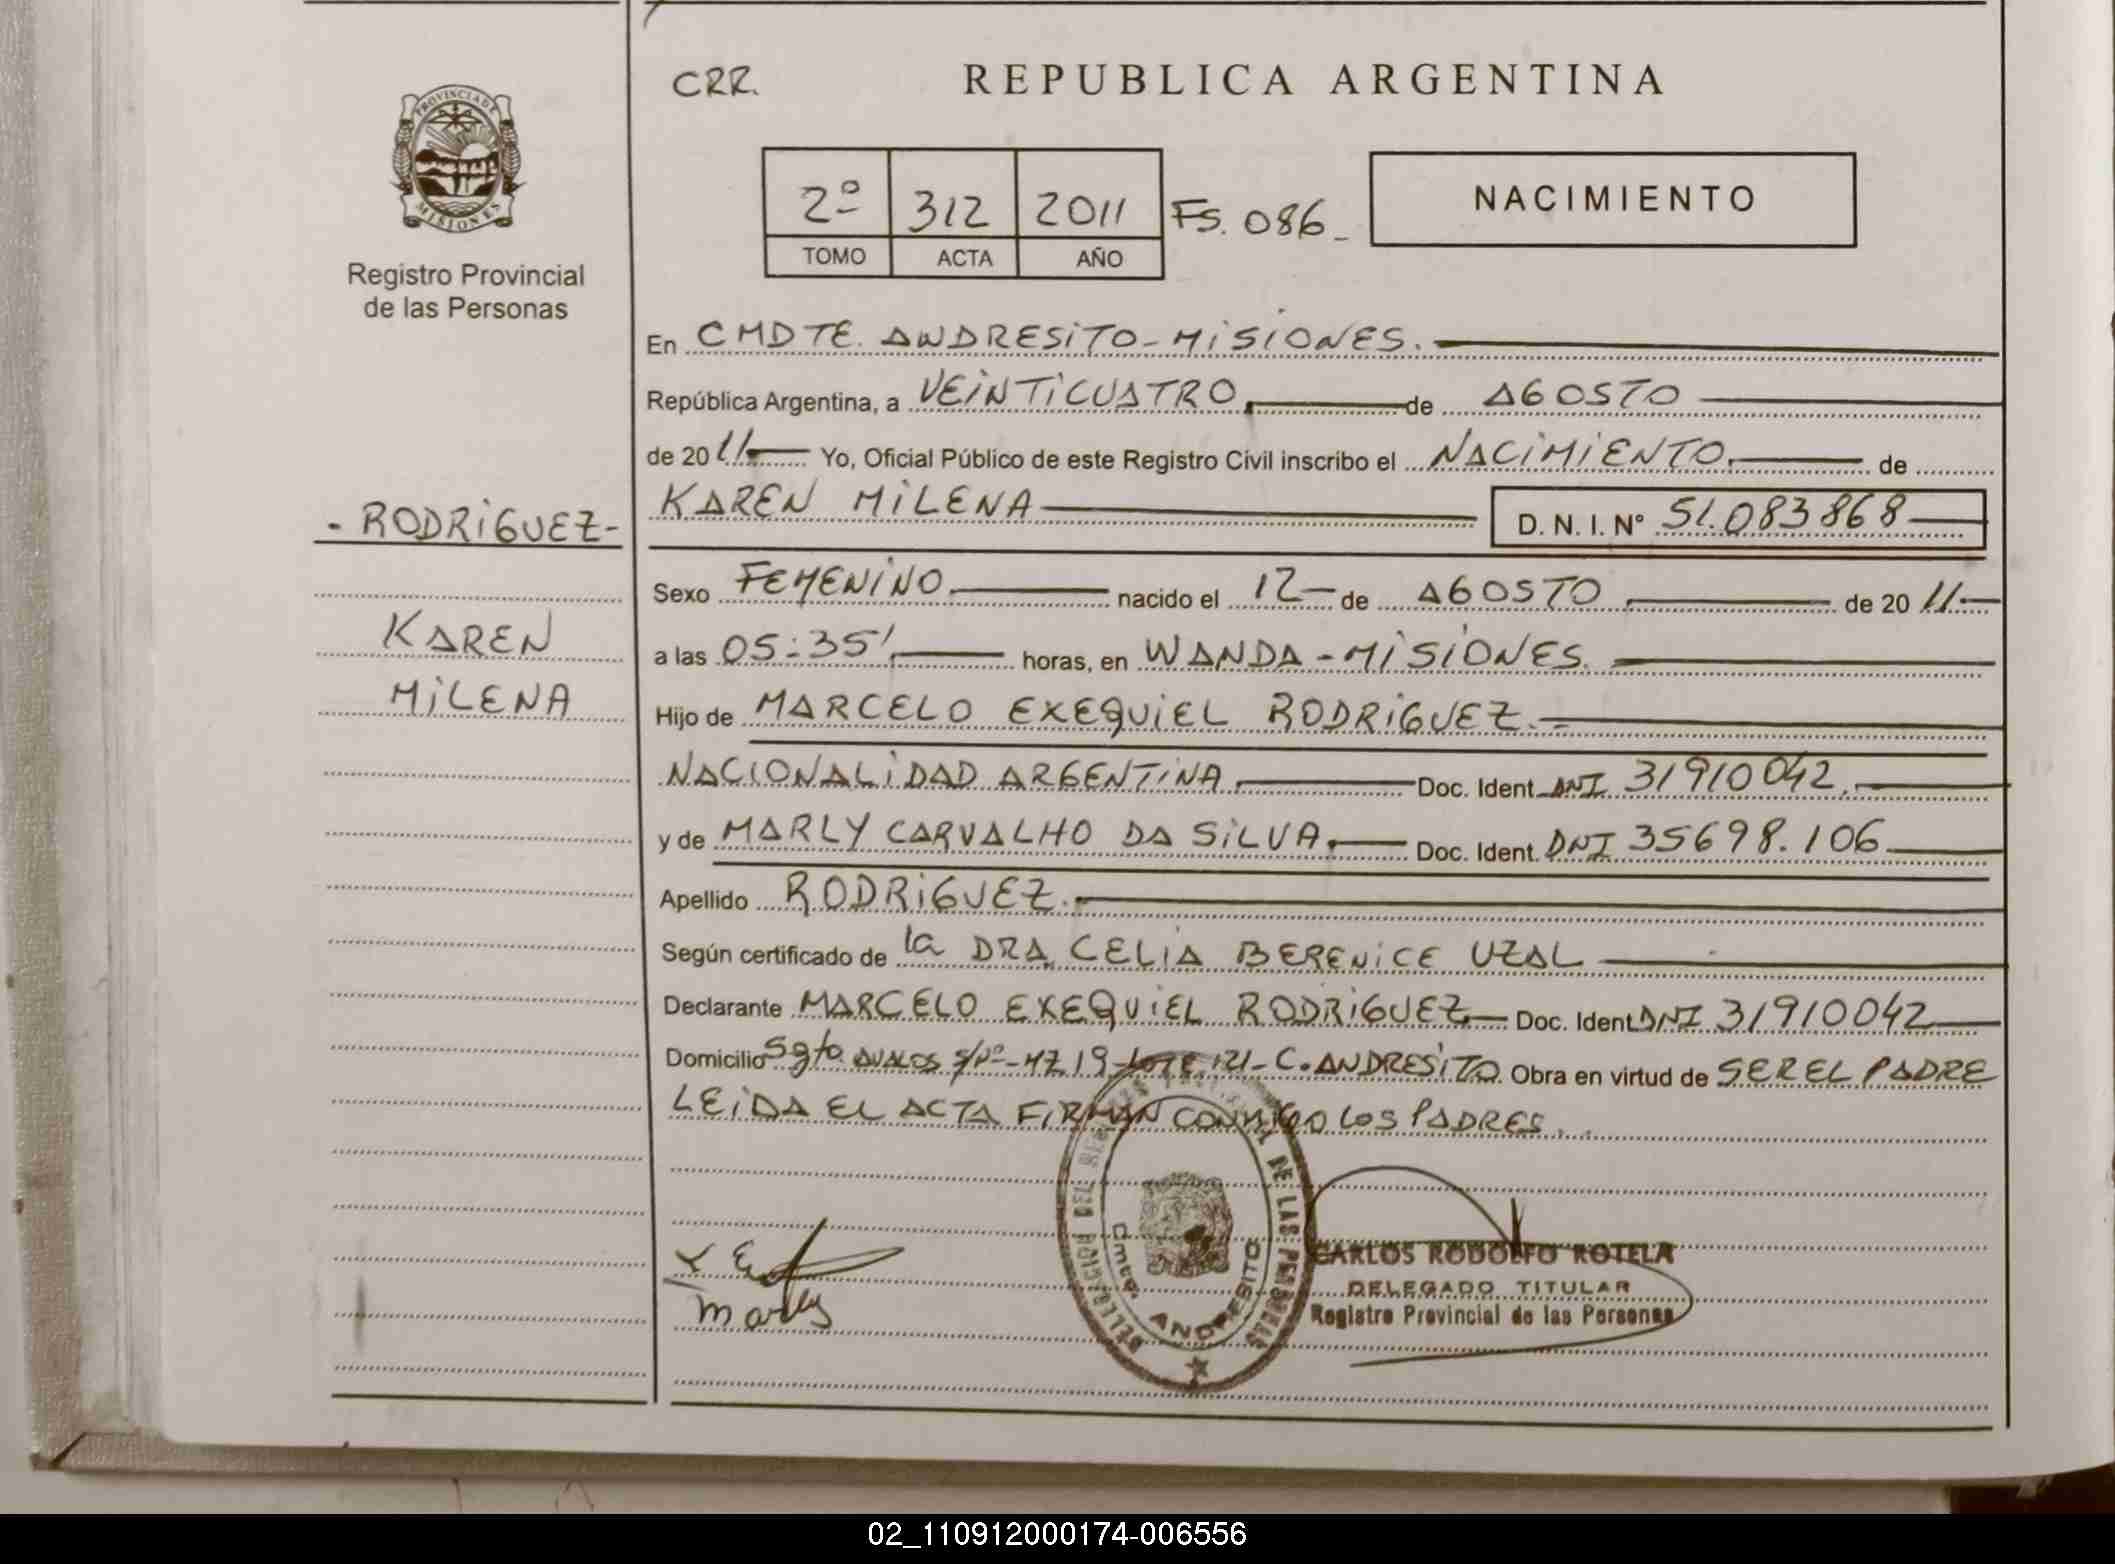 CRR.
REPUBLICA ARGENTINA
PROVINCIA DE
MISIONES
Registro Provincial
de las Personas
2º 312 2011 Fs. 086_
TOMO ACTA AÑO
NACIMIENTO
En CMDTE. ANDRESITO-MISIONES.
República Argentina, a VEINTICUATRO de AGOSTO
de 2011 Yo, Oficial Público de este Registro Civil inscribo el NACIMIENTO. de
KAREN MILENA D. N. I. Nº 51.083868
- RODRIGUEZ-
KAREN
MILENA
Sexo FEMENINO nacido el 12 de AGOSTO de 2011
a las 05:35' horas, en WANDA-MISIONES.
Hijo de MARCELO EXEQUIEL RODRIGUEZ.
NACIONALIDAD ARGENTINA Doc. Ident. DNI 31910042.
y de MARLY CARVALHO DA SILVA. Doc. Ident. DNI 35698.106
Apellido RODRIGUEZ.
Según certificado de la DRA. CELIA BERENICE UZAL
Declarante MARCELO EXEQUIEL RODRIGUEZ Doc. Ident. DNI 31910042
Domicilio Sgto. AVALOS S/Nº-MZ 19-LOTE 121-C. ANDRESITO Obra en virtud de SER EL PADRE
LEIDA EL ACTA FIRMAN CONMIGO LOS PADRES.
DELEGACION DEL REGISTRO DE LAS PERSONAS
Cmte. ANDRESITO
Marly
CARLOS RODOLFO ROTELA
DELEGADO TITULAR
Registro Provincial de las Personas
02_110912000174-006556